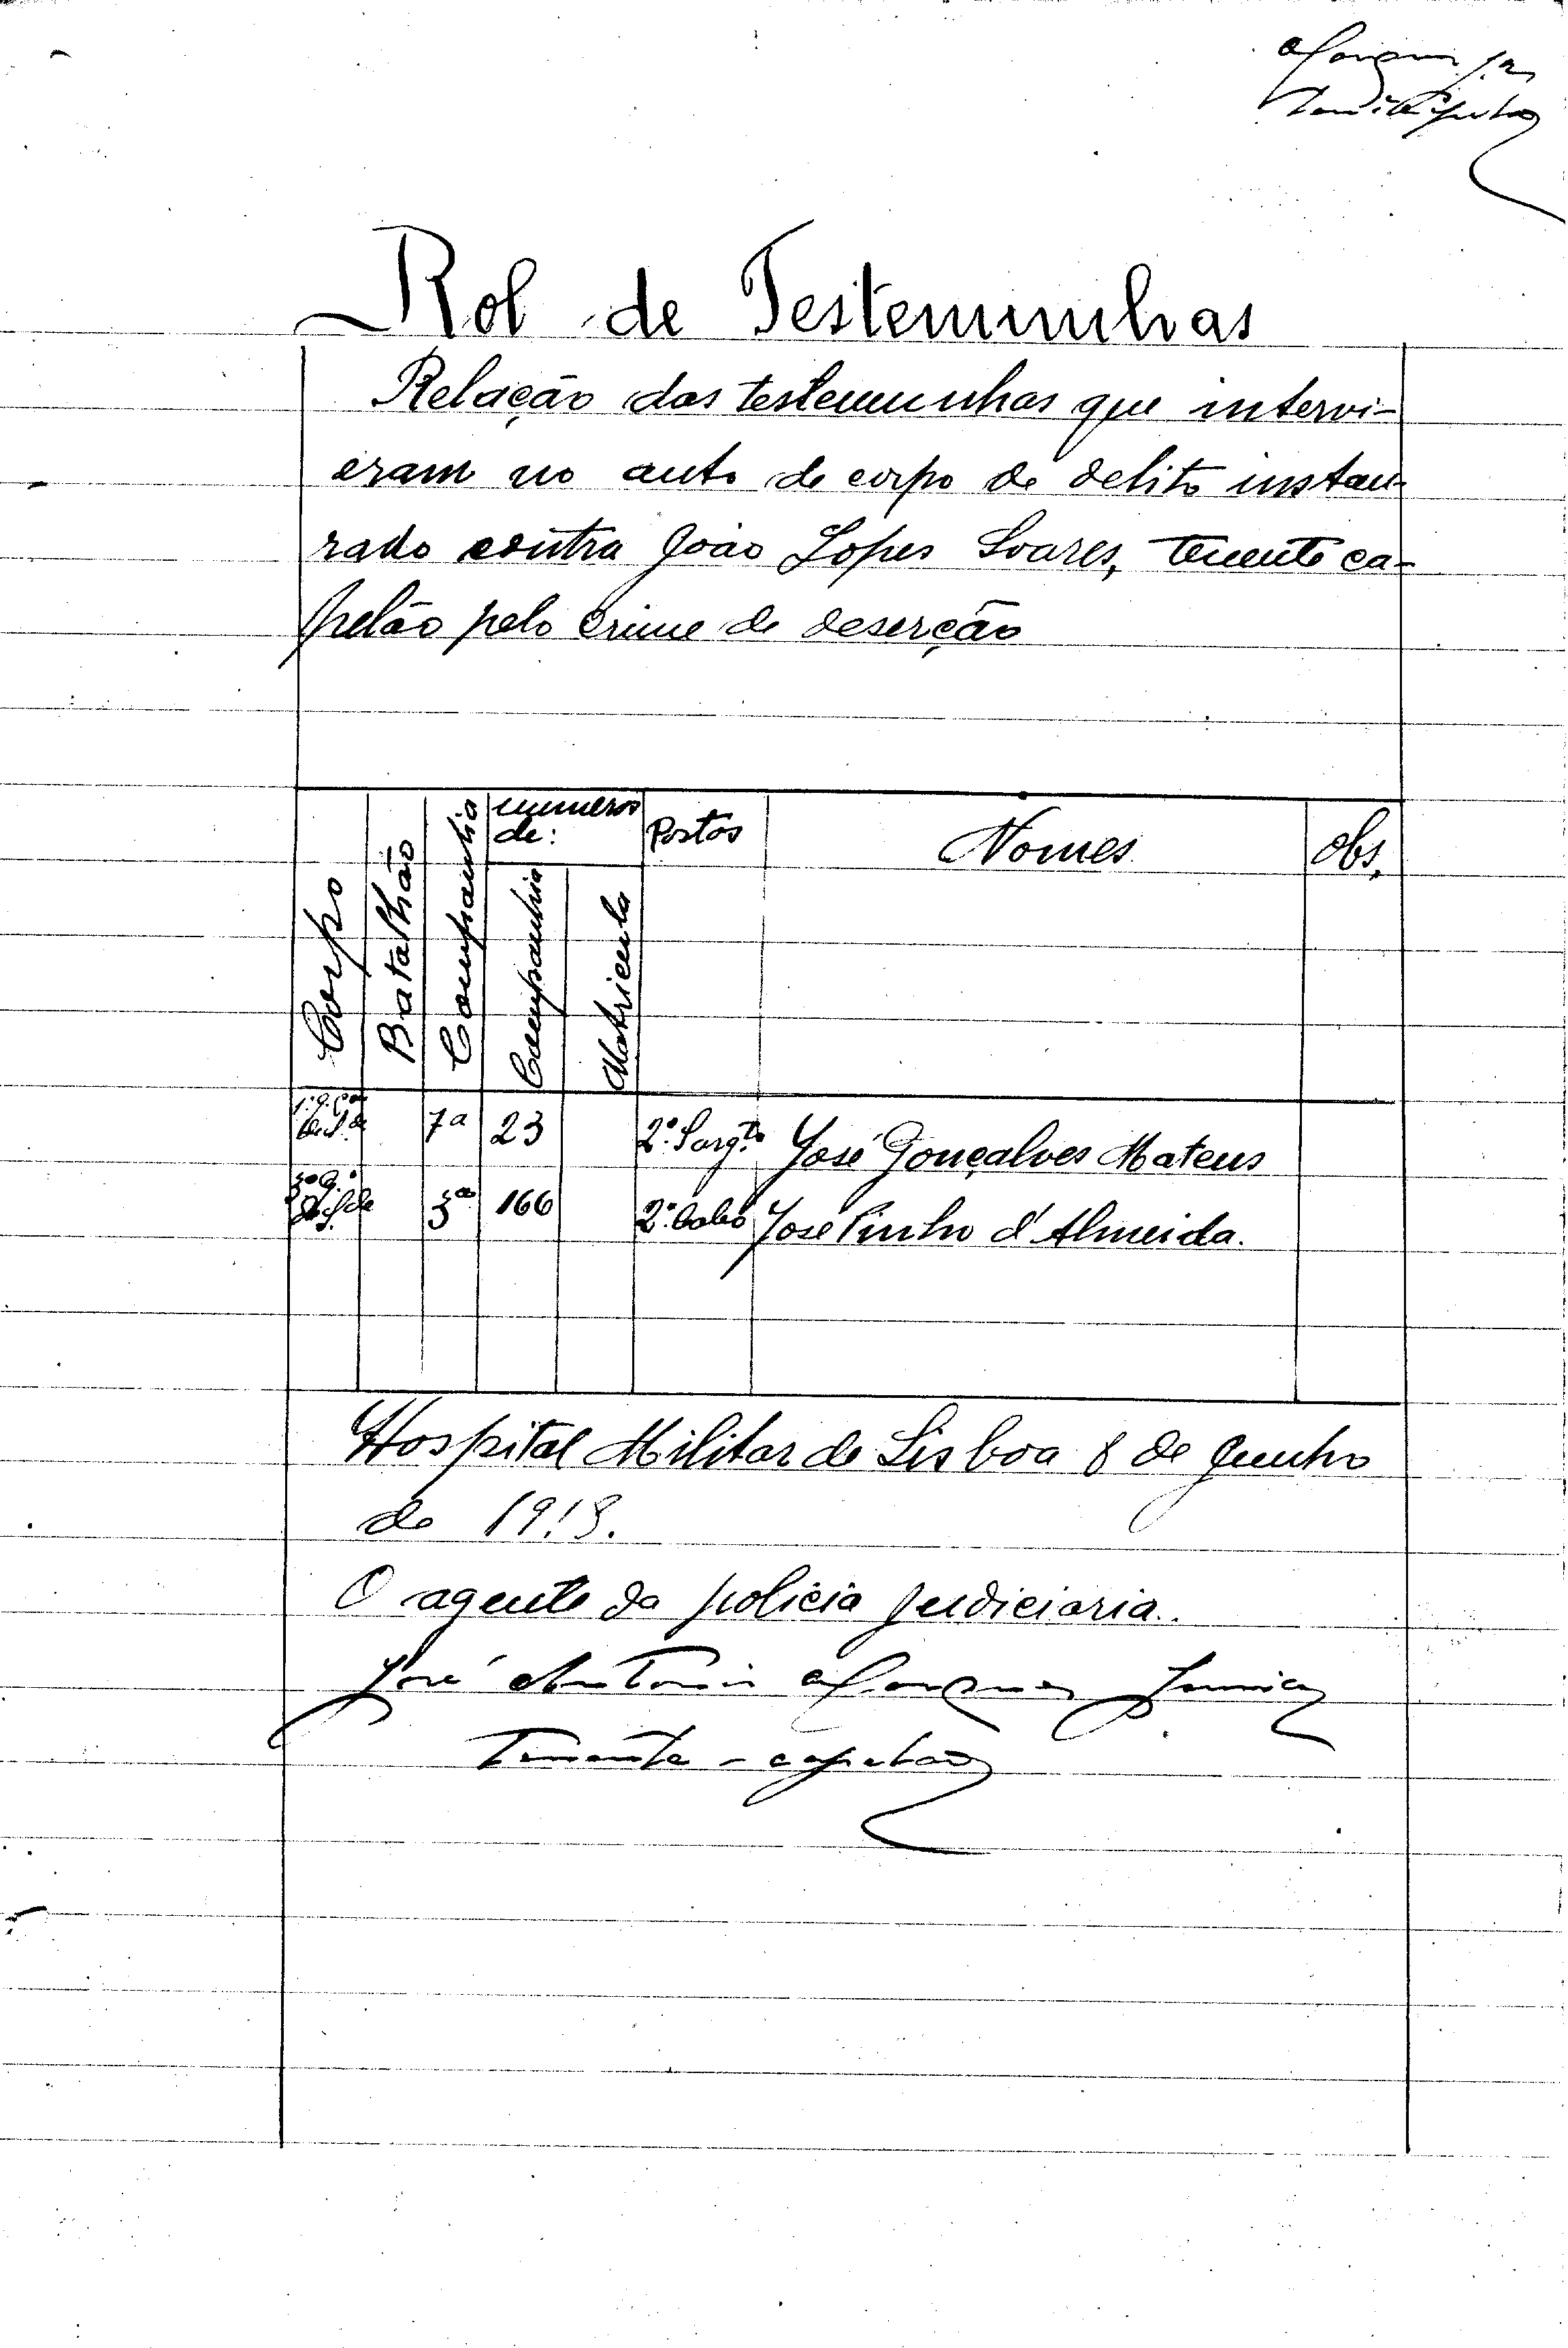 Rol de Testemunhas
Relação das testemunhas que intervi-
eram no auto de corpo de delito instau-
rado contra João Lopes Soares, tenente ca-
pelão pelo crime de deserção
Corpo
Batalhão
Companhia
numeros
de:
Companhia
Matricula
Postos
Nomes
Obs.
7ª 23 2º Sargto José Gonçalves Mateus
3ª 166 2º Cabo José Pinho d'Almeida.
Hospital Militar de Lisboa 8 de Junho
de 1918.
O agente da policia judiciaria.
José Antonio Marques Junior
Tenente-capelão